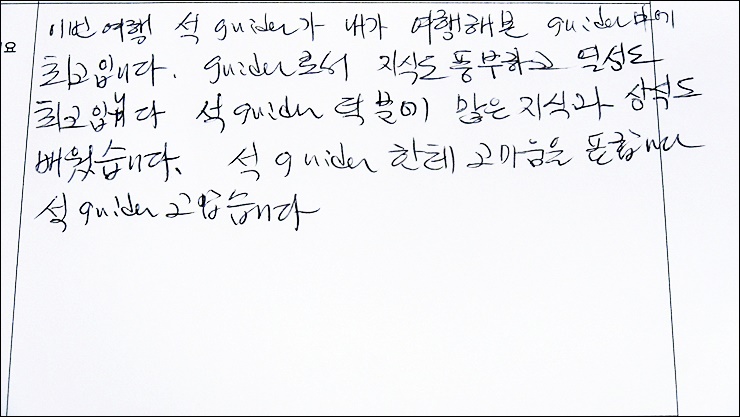 이번 여행 석 guider가 내가 여행해본 guider中에
요
최고입니다. guider로서 지식도 풍부하고 열성도
최고입니다 석 guider 덕분이 많은 지식과 상식도
배웠습니다. 석 guider 한테 고마움을 표합니다
석 guider 고맙습니다